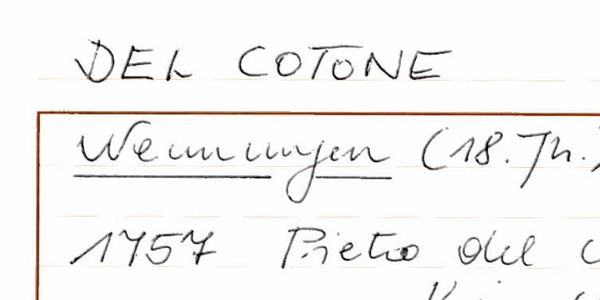 DEL COTONE
Wemmingen (18. Jh.)
1757 Pietro del C